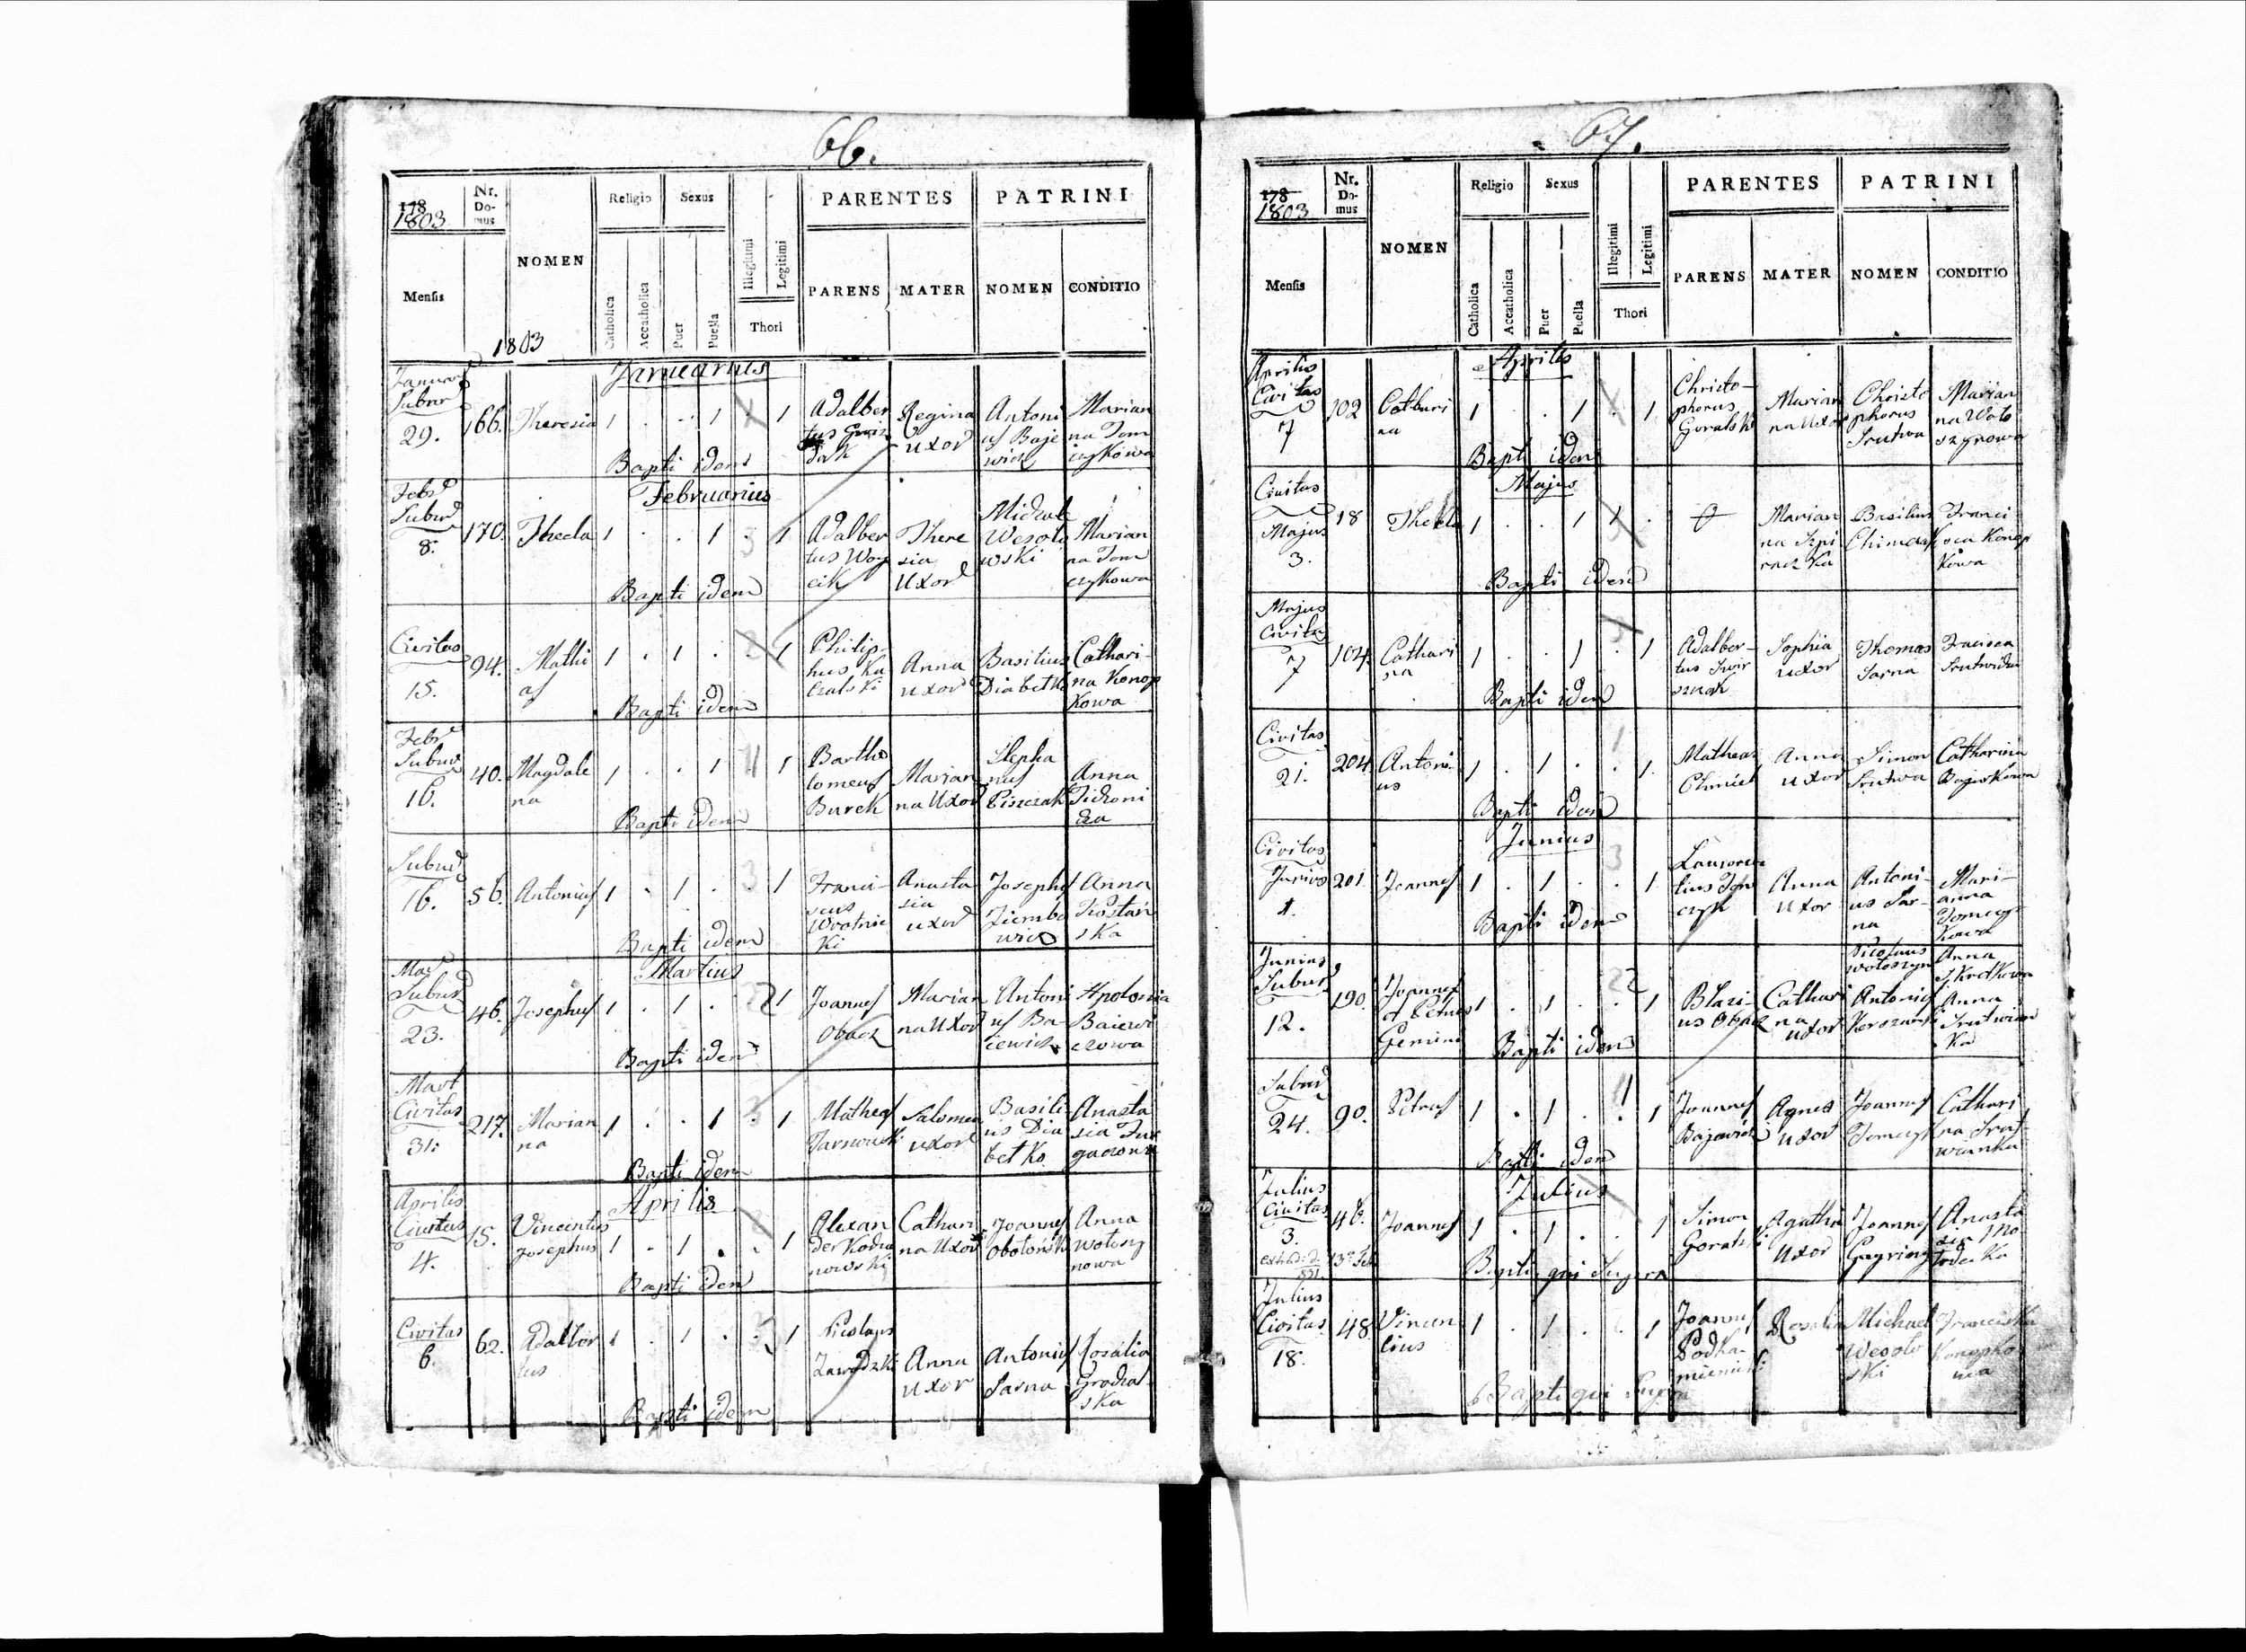 66.
178
1803
Nr. Do- mus
NOMEN
Religio
Sexus
Illegitimi
Legitimi
PARENTES
PATRINI
Mensis
Catholica
Accatholica
Puer
Puella
Thori
PARENS
MATER
NOMEN
CONDITIO
1803
Januarius
Subur
29.
166.
Theresia
1 . . 1 . 1
Adalber
tus
Regina
Uxor
Antoni
us Baje
wicz
Marian
na Tom
czykowa
Bapti idem
Februarius
Febr
Subur
8.
170.
Thecla
1 . . 1 . 1
Adalber
tus Woy
cik
There
sia
Uxor
Michael
Wesolo
wski
Marian
na Tom
czykowa
Bapti idem
Civitas
15.
94.
Mathi
as
1 . 1 . . 1
Philip-
pus Ka
czalski
Anna
uxor
Basilius
Diabetko
Cathari-
na Konop
kowa
Bapti idem
Febr
Subur
16.
40.
Magdale
na
1 . . 1 1
Bartho
lomeus
Burek
Marian
na Uxor
Stepha
nus
Piszczak
Anna
Bapti idem
Subur
16.
56.
Antonius
1 . 1 . . 1
Franci-
scus
Wrotnic
ki
Anasta
sia
uxor
Josephus
Ziembo
wicz
Anna
Kostań
ska
Bapti idem
Martius
Mar
Subur
23.
46.
Josephus
1 . 1 . 1
Joannes
Obacz
Marian
na Uxor
Antoni
us Ba-
iewicz
Apolonia
Baiewi
czowa
Bapti idem
Mart
Civitas
31.
217.
Marian
na
1 . . 1 . 1
Matheas
Tarnowski
Salomea
uxor
Basili-
us Dia
betko
Anasta
sia
Bapti idem
Aprilis
Aprilis
Civitas
4.
15.
Vincentius
Josephus
1 . 1 . . 1
Alexan
der
nowski
Cathari
na Uxor
Joannes
Obolonski
Anna
Wolosz
nowa
Bapti idem
Civitas
6.
62.
Adalber
tus
1 . 1 . . 1
Nicolaus
Zawadzki
Anna
Uxor
Antonius
Sarna
Rosalia
Grodza
ska
Bapti idem
67.
178
1803
Nr. Do- mus
NOMEN
Religio
Sexus
Illegitimi
Legitimi
PARENTES
PATRINI
Mensis
Catholica
Accatholica
Puer
Puella
Thori
PARENS
MATER
NOMEN
CONDITIO
Aprilis
Aprilis
Civitas
7
102
Cathari
na
1 . . 1 . 1
Christo-
phorus
Goralski
Marian
na Uxor
Christo
phorus
Srutwa
Marian
na Wolo
szynowa
Bapti idem
Majus
Civitas
Majus
3.
18
Thekla
1 . . 1 1 .
Marian
na Szpi
raczka
Basilius
Chimczak
Franci
sca Konop
kowa
Bapti idem
Majus
Civitas
7
104.
Cathari
na
1 . . 1 . 1
Adalber-
tus Swir
szczak
Sophia
uxor
Thomas
Sarna
Bapti idem
Civitas
21.
204
Antoni-
us
1 . 1 . . 1.
Matheas
Chmiel
Anna
uxor
Simon
Srutwa
Catharina
Bapti idem
Junius
Civitas
Junius
1.
201
Joannes
1 . 1 . . 1
Anna
Uxor
Antoni-
us Sar-
na
Mari-
anna
Tomczy
kowa
Bapti idem
Junius
Subur
12.
190
Joannes
et Petrus
Gemini
1 . 1 . . 1
Blasi-
us Obacz
Cathari
na
uxor
Nicolaus
Woloszyn
Antonius
Anna
Skrotkowa
Anna
Bapti idem
Subur
24.
90.
Petrus
1 . 1 . . 1
Joannes
Bajewicz
Agnes
uxor
Joannes
Tomczyk
Cathari
na
Bapti idem
Julius
Julius
Civitas
3.
46.
Joannes
1 . 1 . . 1
Simon
Goralski
Agatha
Uxor
Joannes
Anasta
sia
Bapti qui Supra
Julius
Civitas
18.
48
Vincen
tius
1 . 1 . . 1
Joannes
Podka-
mienski
Rosalia
Michael
Wesolo
ski
Franciska
Bapti qui Supra